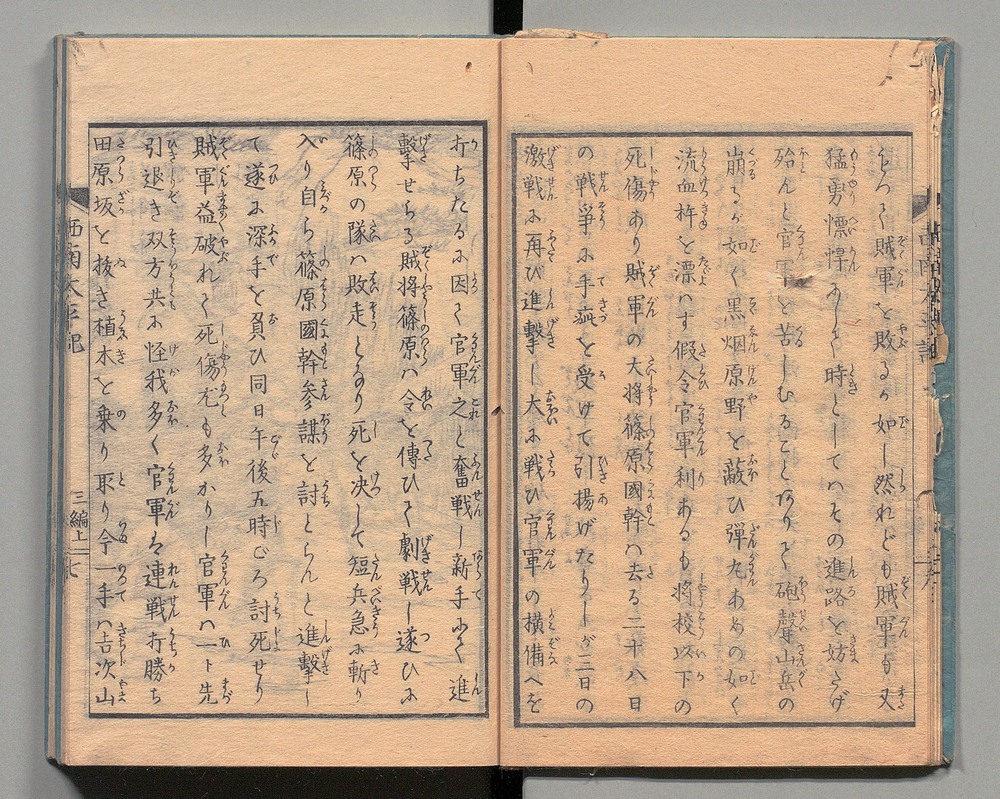 もつて賊軍を敗るが如し然れども賊軍も又
猛勇慓悍にして時としてハその進路を妨たげ
殆んと官軍を苦しむることありて砲聲山岳の
崩るが如く黒烟原野を蔽ひ弾丸あめの如く
流血杵を漂ハす假令官軍利あるも将校以下の
死傷あり賊軍の大将篠原國幹ハ去る二十八日
の戦爭に手疵を受けて引揚げたりしが三日の
激戦に再び進撃し大に戦ひ官軍の横備へを
打ちたるに因て官軍之と奮戦し新手にて進
撃せる賊将篠原ハ令を傳ひて劇戦し遂ひに
篠原の隊ハ敗走となり死を决して短兵急に斬り
入り自ら篠原國幹参謀を討とらんと進撃し
て遂に深手を負ひ同日午後五時ごろ討死せり
賊軍益破れて死傷尤も多かりし官軍ハ一ト先
引退き双方共に怪我多く官軍ハ連戦打勝ち
田原坂を抜き植木を乗り取り今一手ハ吉次山
西南太平記
三編上
七